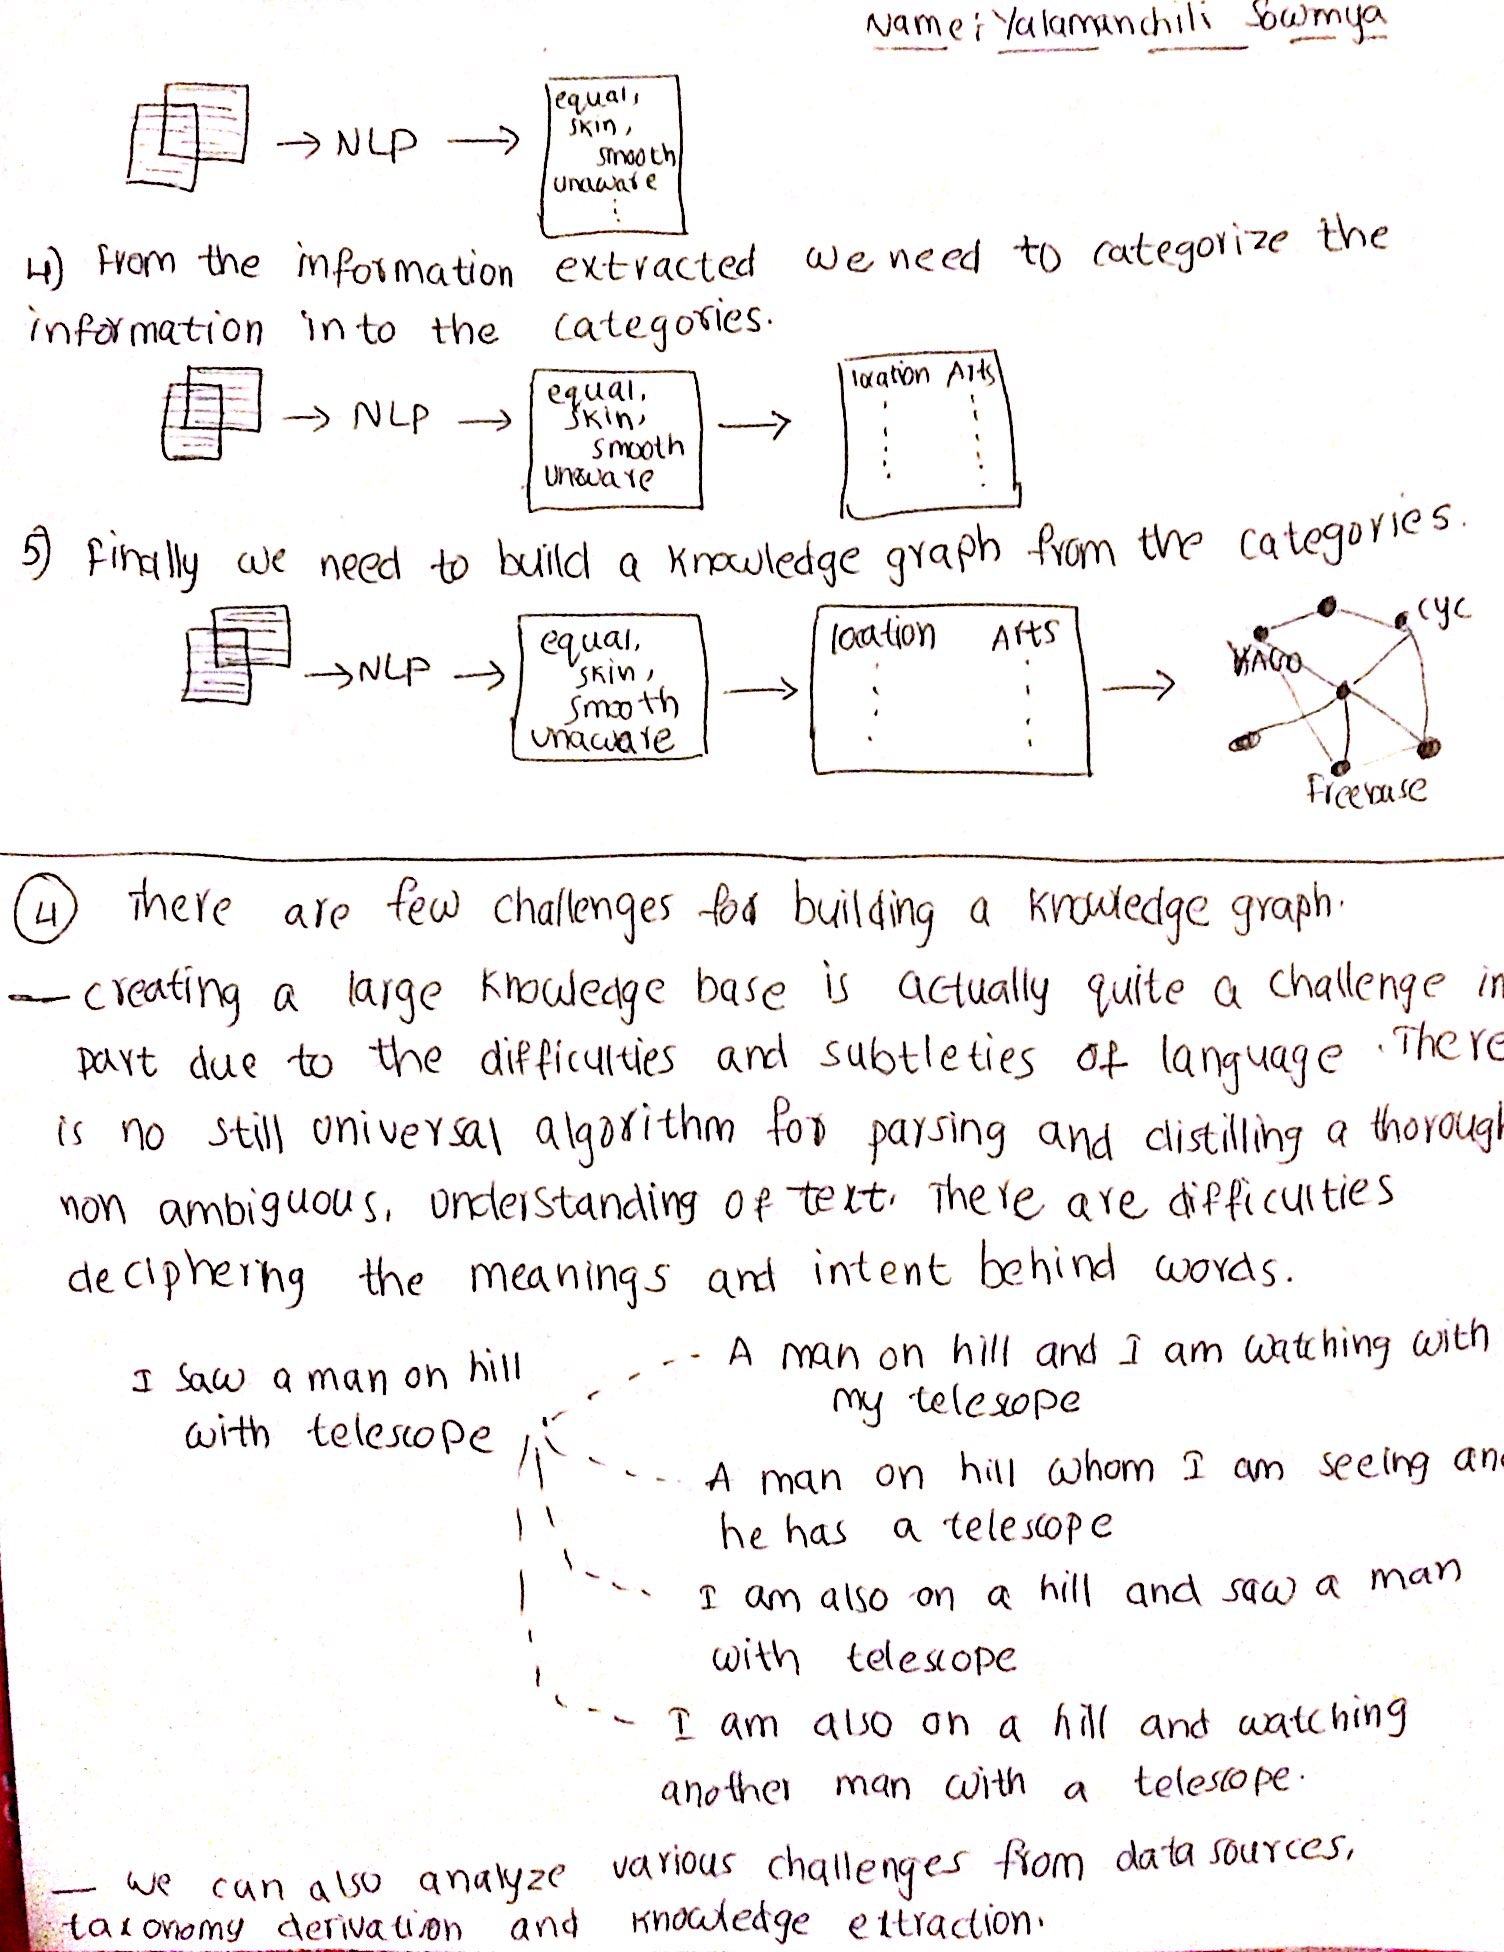 Name: Yalamanchili Sowmya
→ NLP → equal,
skin,
smooth
unaware
4) From the information extracted we need to categorize the
information into the categories.
→ NLP → equal,
skin,
smooth
unaware
→ location Arts
5) Finally we need to build a knowledge graph from the categories.
→ NLP → equal,
skin,
smooth
unaware
→ location Arts
→ YAGO
cyc
Freebase
4 There are few challenges for building a knowledge graph.
— creating a large knowledge base is actually quite a challenge in
part due to the difficulties and subtleties of language. There
is no still universal algorithm for parsing and distilling a thorough
non ambiguous, understanding of text. There are difficulties
deciphering the meanings and intent behind words.
I saw a man on hill
with telescope
A man on hill and I am watching with
my telescope
A man on hill whom I am seeing and
he has a telescope
I am also on a hill and saw a man
with telescope
I am also on a hill and watching
another man with a telescope.
— we can also analyze various challenges from data sources,
taxonomy derivation and knowledge extraction.